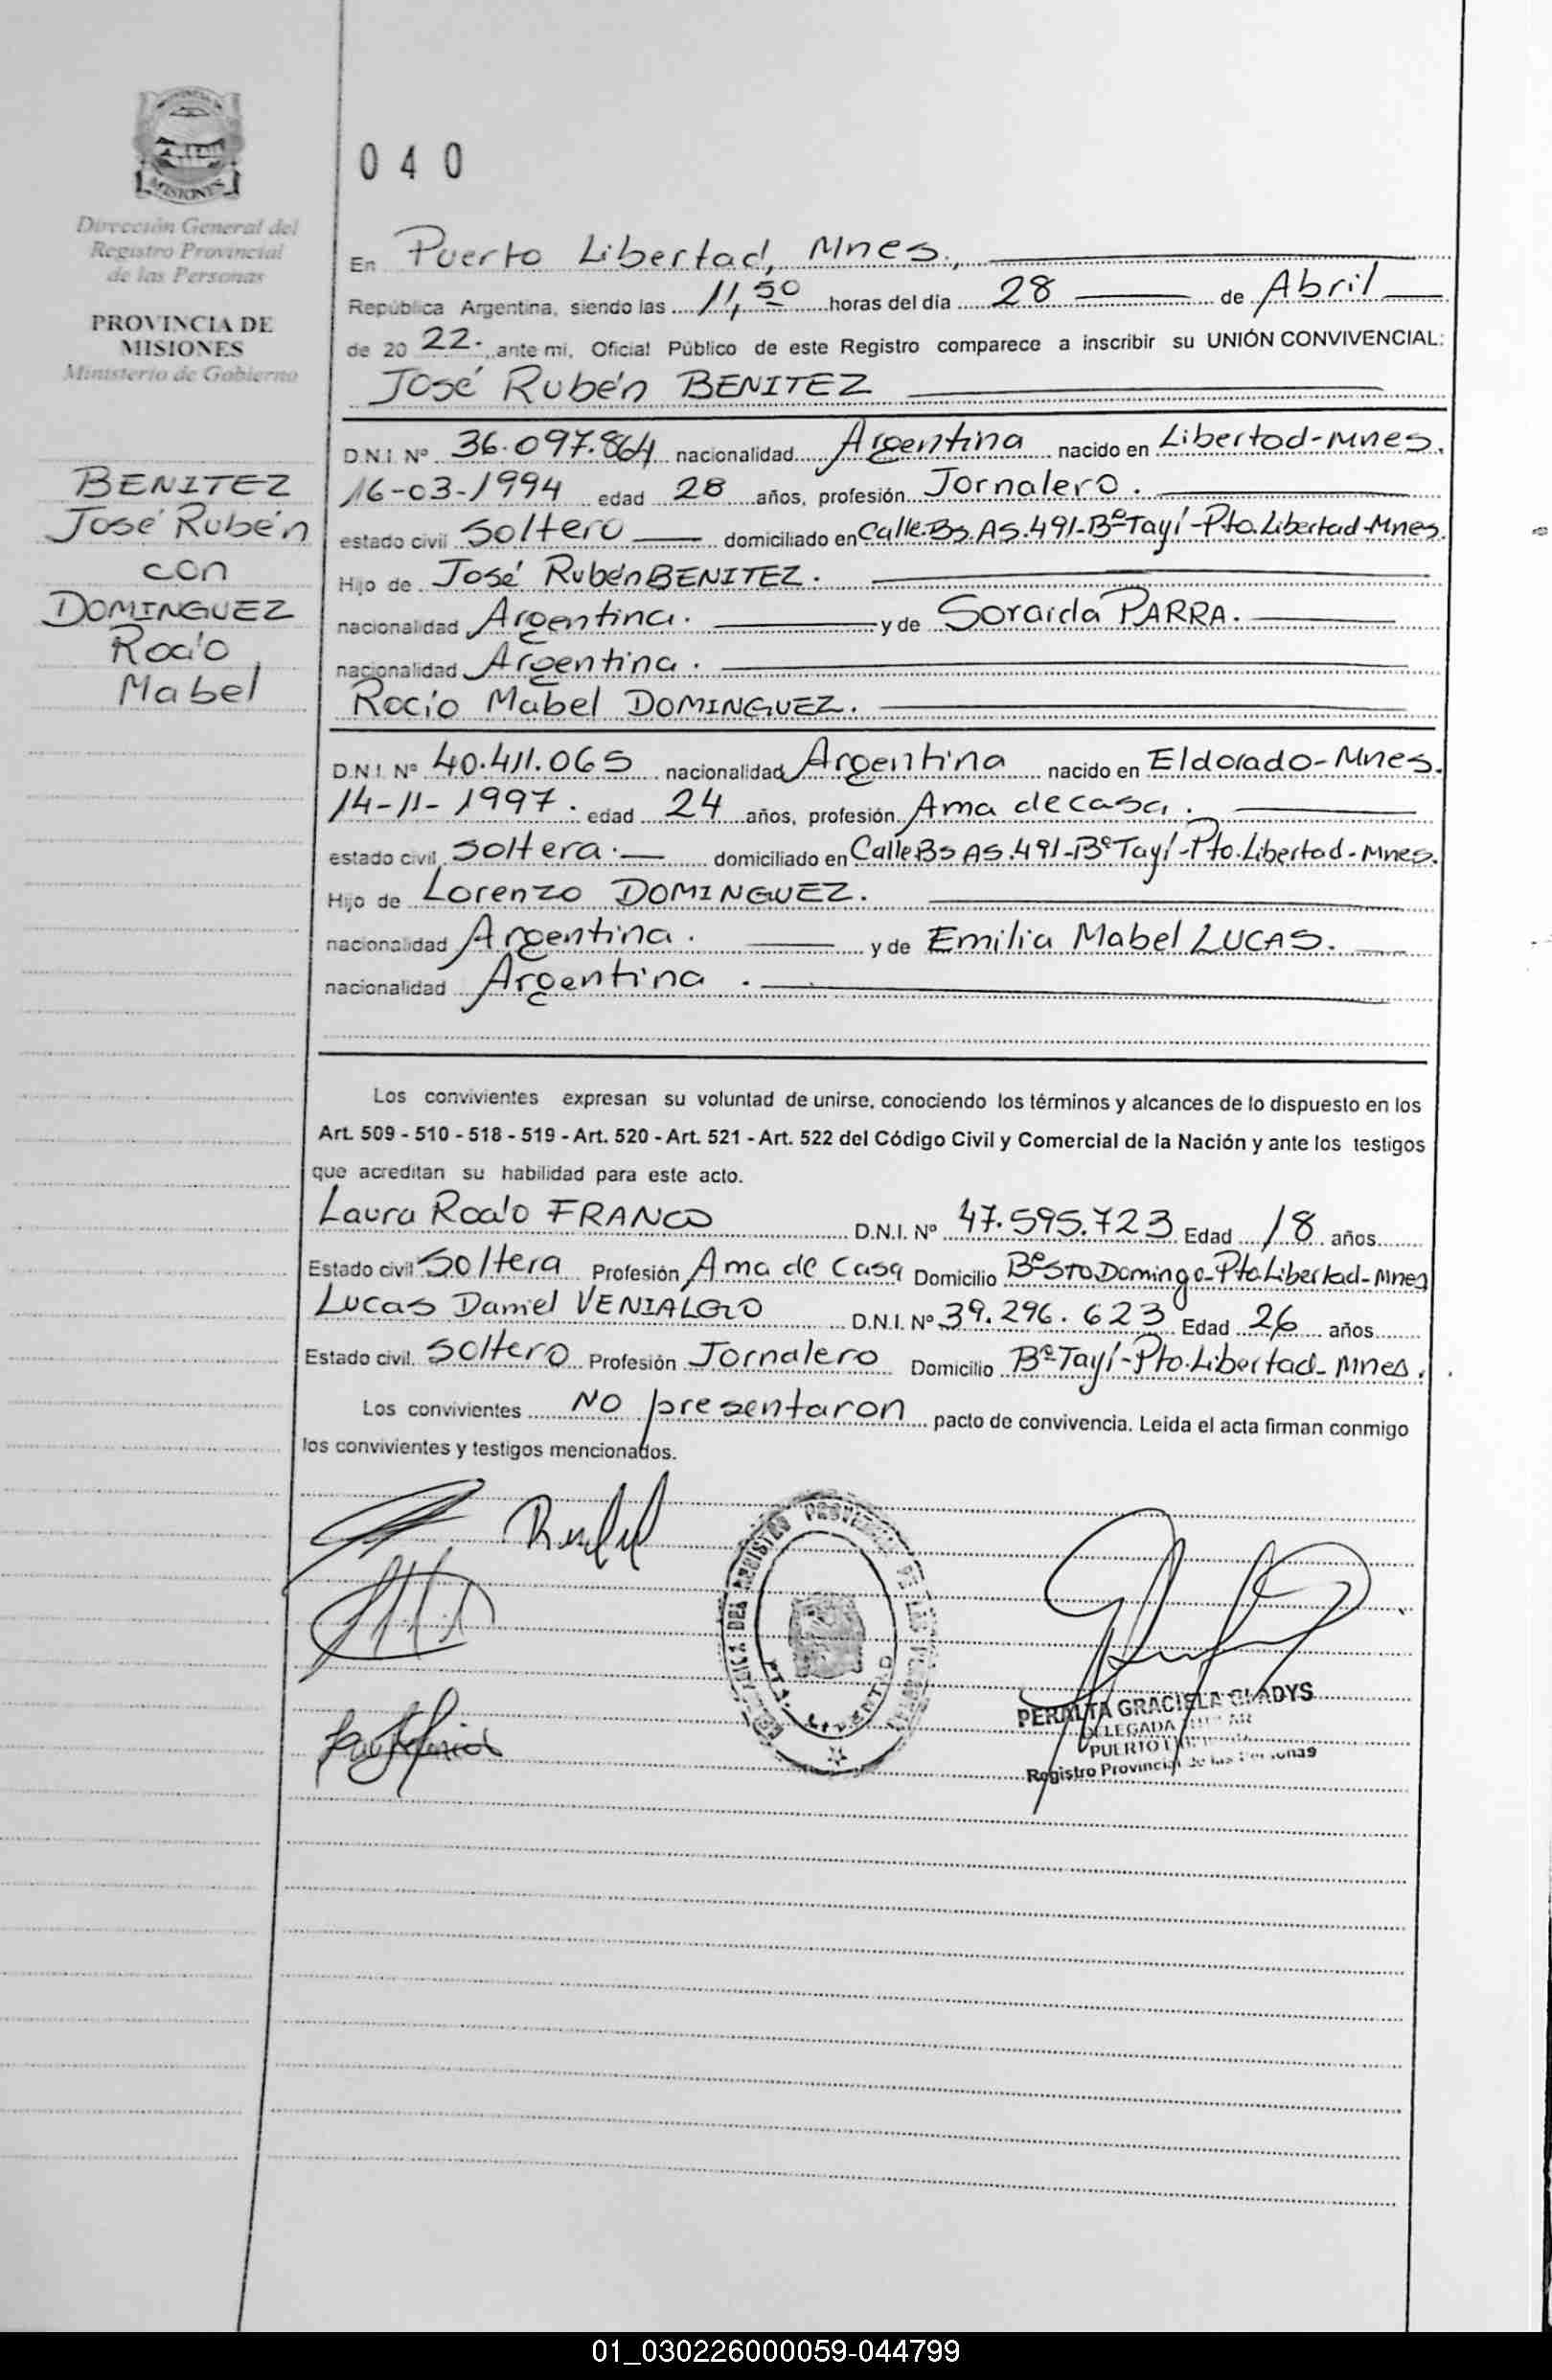 PROVINCIA DE
MISIONES
Dirección General del
Registro Provincial
de las Personas
PROVINCIA DE
MISIONES
Ministerio de Gobierno
BENITEZ
José Rubén
con
DOMINGUEZ
Rocío
Mabel
040
En Puerto Libertad, Mnes.,
República Argentina, siendo las 11,50 horas del día 28 de Abril
de 20 22. ante mi, Oficial Público de este Registro comparece a inscribir su UNIÓN CONVIVENCIAL:
José Rubén BENITEZ
D.N.I. Nº 36.097.864 nacionalidad Argentina nacido en Libertad-Mnes.
16-03-1994 edad 28 años, profesión Jornalero.
estado civil Soltero domiciliado en Calle.Bs.AS.491-Bº Tayí-Pto.Libertad-Mnes.
Hijo de José Rubén BENITEZ.
nacionalidad Argentina. y de Soraida PARRA.
nacionalidad Argentina.
Rocío Mabel DOMINGUEZ.
D.N.I. Nº 40.411.065 nacionalidad Argentina nacido en Eldorado-Mnes.
14-11-1997. edad 24 años, profesión Ama de casa.
estado civil soltera. domiciliado en Calle Bs AS.491-Bº Tayí-Pto.Libertad-Mnes.
Hijo de Lorenzo DOMINGUEZ.
nacionalidad Argentina. y de Emilia Mabel LUCAS.
nacionalidad Argentina.
Los convivientes expresan su voluntad de unirse, conociendo los términos y alcances de lo dispuesto en los
Art. 509 - 510 - 518 - 519 - Art. 520 - Art. 521 - Art. 522 del Código Civil y Comercial de la Nación y ante los testigos
que acreditan su habilidad para este acto.
Laura Rocío FRANCO D.N.I. Nº 47.595.723 Edad 18 años
Estado civil Soltera Profesión Ama de Casa Domicilio Bº STO Domingo-Pto.Libertad-Mnes
Lucas Daniel VENIALGO D.N.I. Nº 39.296.623 Edad 26 años
Estado civil. Soltero Profesión Jornalero Domicilio Bº Tayí-Pto.Libertad-Mnes.
Los convivientes NO presentaron pacto de convivencia. Leída el acta firman conmigo
los convivientes y testigos mencionados.
DEL REGISTRO PROVINCIAL DE LAS
PTO. LIBERTAD
PERALTA GRACIELA GLADYS
DELEGADA TITULAR
PUERTO
Registro Provincial de las Personas
01_030226000059-044799